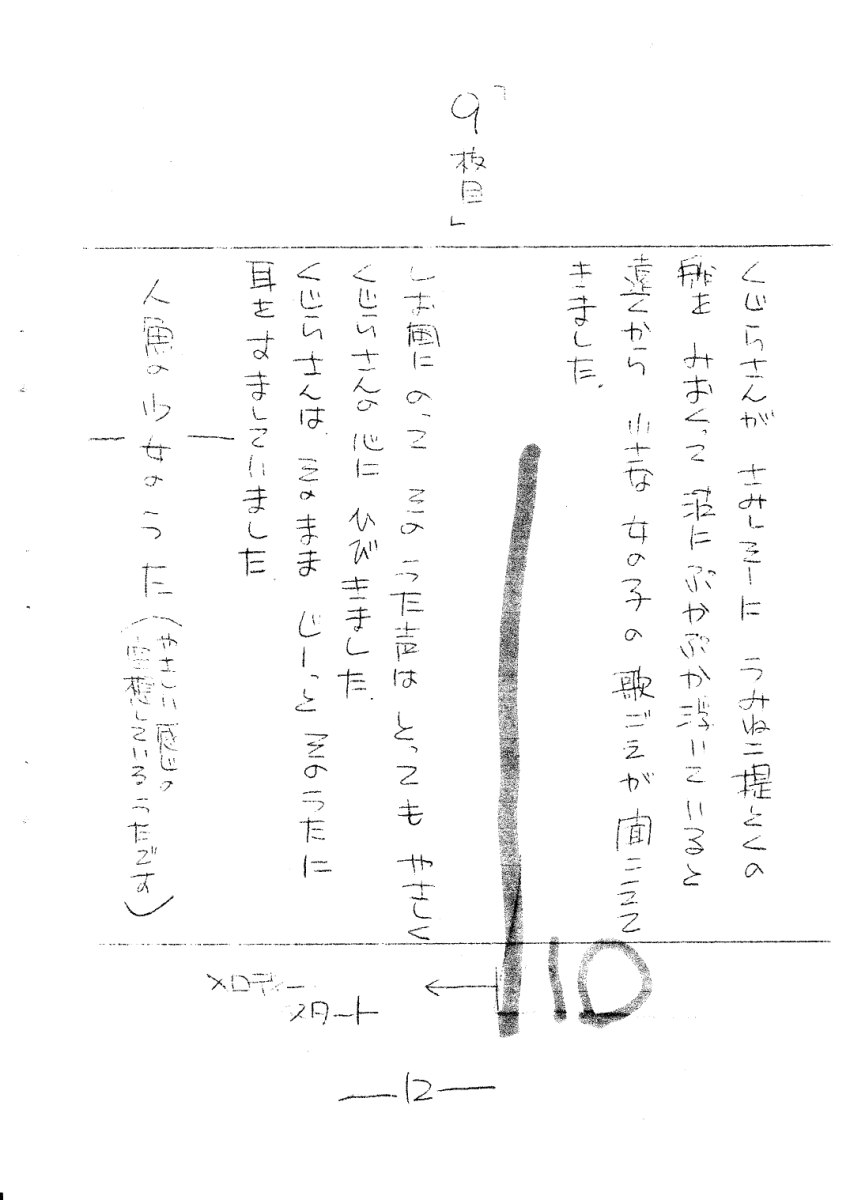 「9枚目」
くじらさんが さみしミーに うみねこ提とくの
船を みおくって 波に ぷかぷか浮いていると
遠くから 小さな 女の子の 歌ごえが 聞こえて
きました.
しお風に のって その うた声は とっても やさしく
くじらさんの 心に ひびきました.
くじらさんは そのまま じーっと そのうたに
耳を すましていました
人魚の少女のうた (やさしい感じの
空想しているうたです)
10
メロディー
スタート
—12—